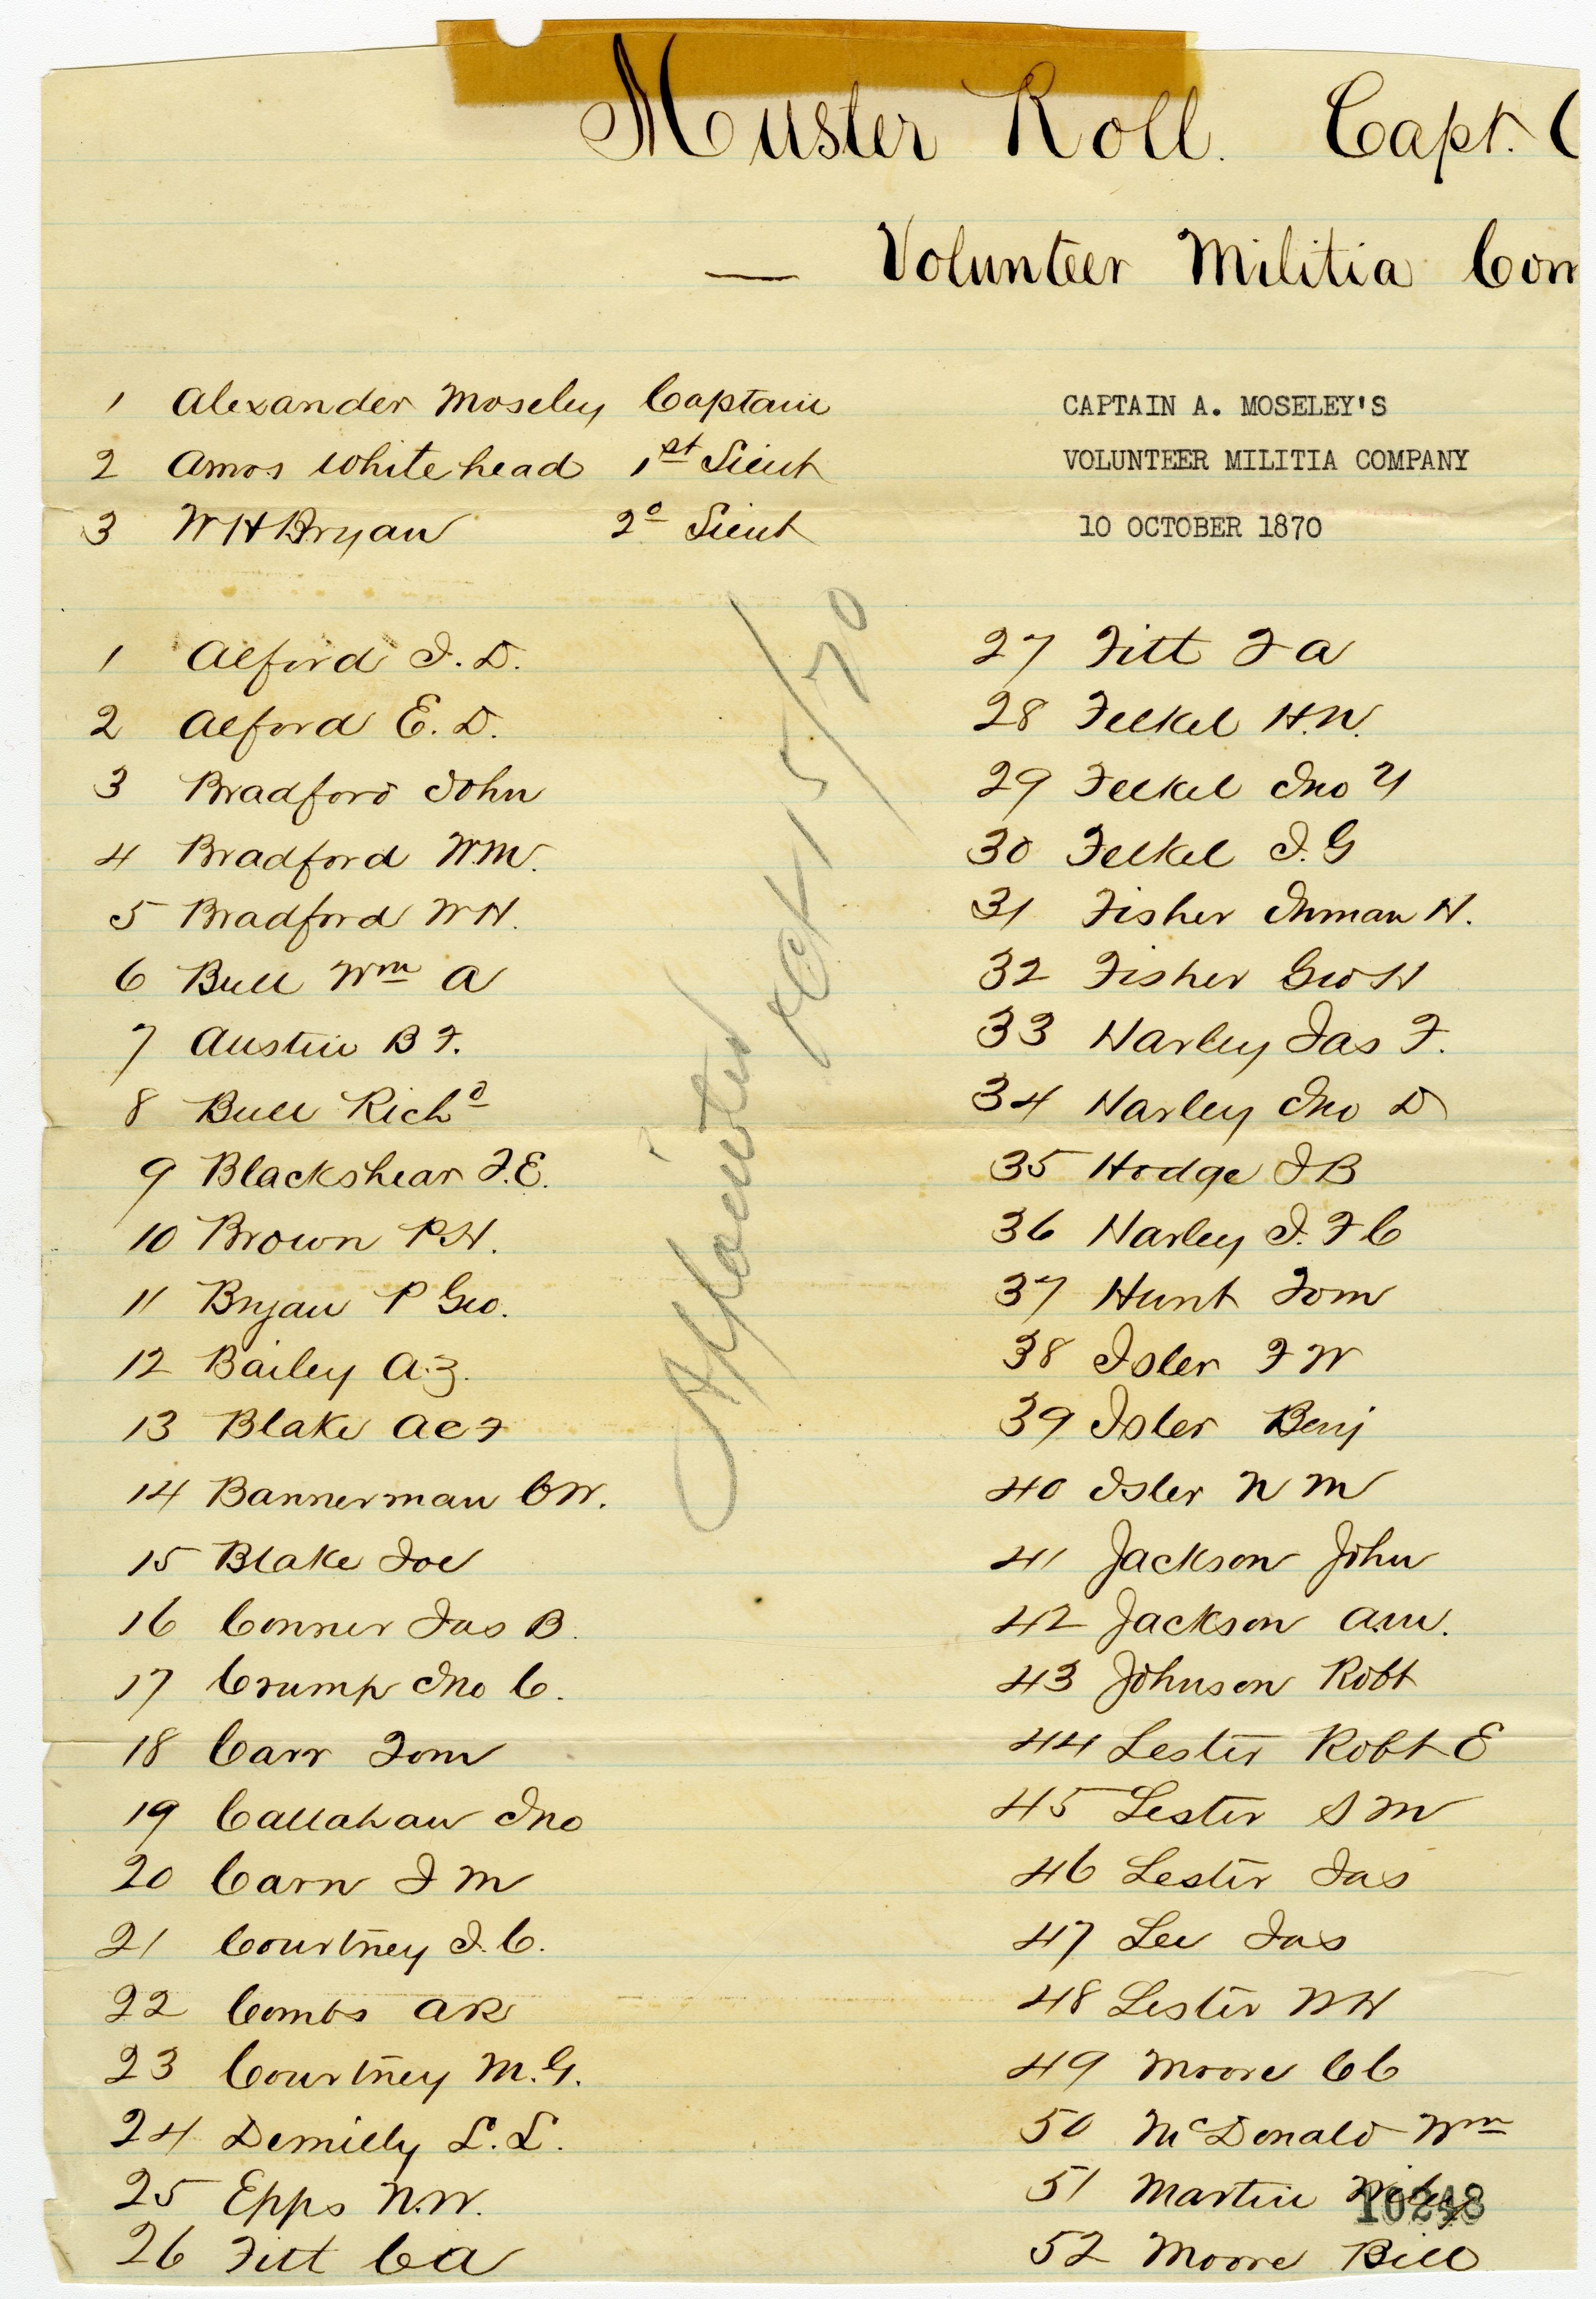 Muster Roll. Capt.
Volunteer Militia Com
1 Alexander Moseley Captain
2 Amos Whitehead 1st Lieut
3 W H Bryan 2d Lieut
CAPTAIN A. MOSELEY'S
VOLUNTEER MILITIA COMPANY
10 OCTOBER 1870
1 Alford J. D.
2 Alford E. D.
3 Bradford John
4 Bradford W.M.
5 Bradford W H.
6 Bull Wm A
7 Austin B F.
8 Bull Richd
9 Blackshear T. E.
10 Brown P. H.
11 Bryan P Geo.
12 Bailey A. Z.
13 Blake A C F
14 Bannerman C W.
15 Blake Joe
16 Conner Jas B.
17 Crump Jno C.
18 Carr Tom
19 Callahan Jno
20 Carn J M
21 Courtney J. C.
22 Combs A R
23 Courtney M. G.
24 Demilly L. L.
25 Epps N. W.
26 Fitt C A
Oct 15/70
27 Fitt F A
28 Felkel H. N.
29 Felkel Jno Y
30 Felkel J. G
31 Fisher Inman H.
32 Fisher Geo H
33 Harley Jas F.
34 Harley Jno D
35 Hodge J B
36 Harley J. F C
37 Hunt Tom
38 Isler F W
39 Isler Benj
40 Isler N M
41 Jackson John
42 Jackson A.W.
43 Johnson Robt
44 Lester Robt E
45 Lester S M
46 Lester Jas
47 Lee Jas
48 Lester W H
49 Moore C C
50 McDonald Wm
51 Martin
10248
52 Moore Bill